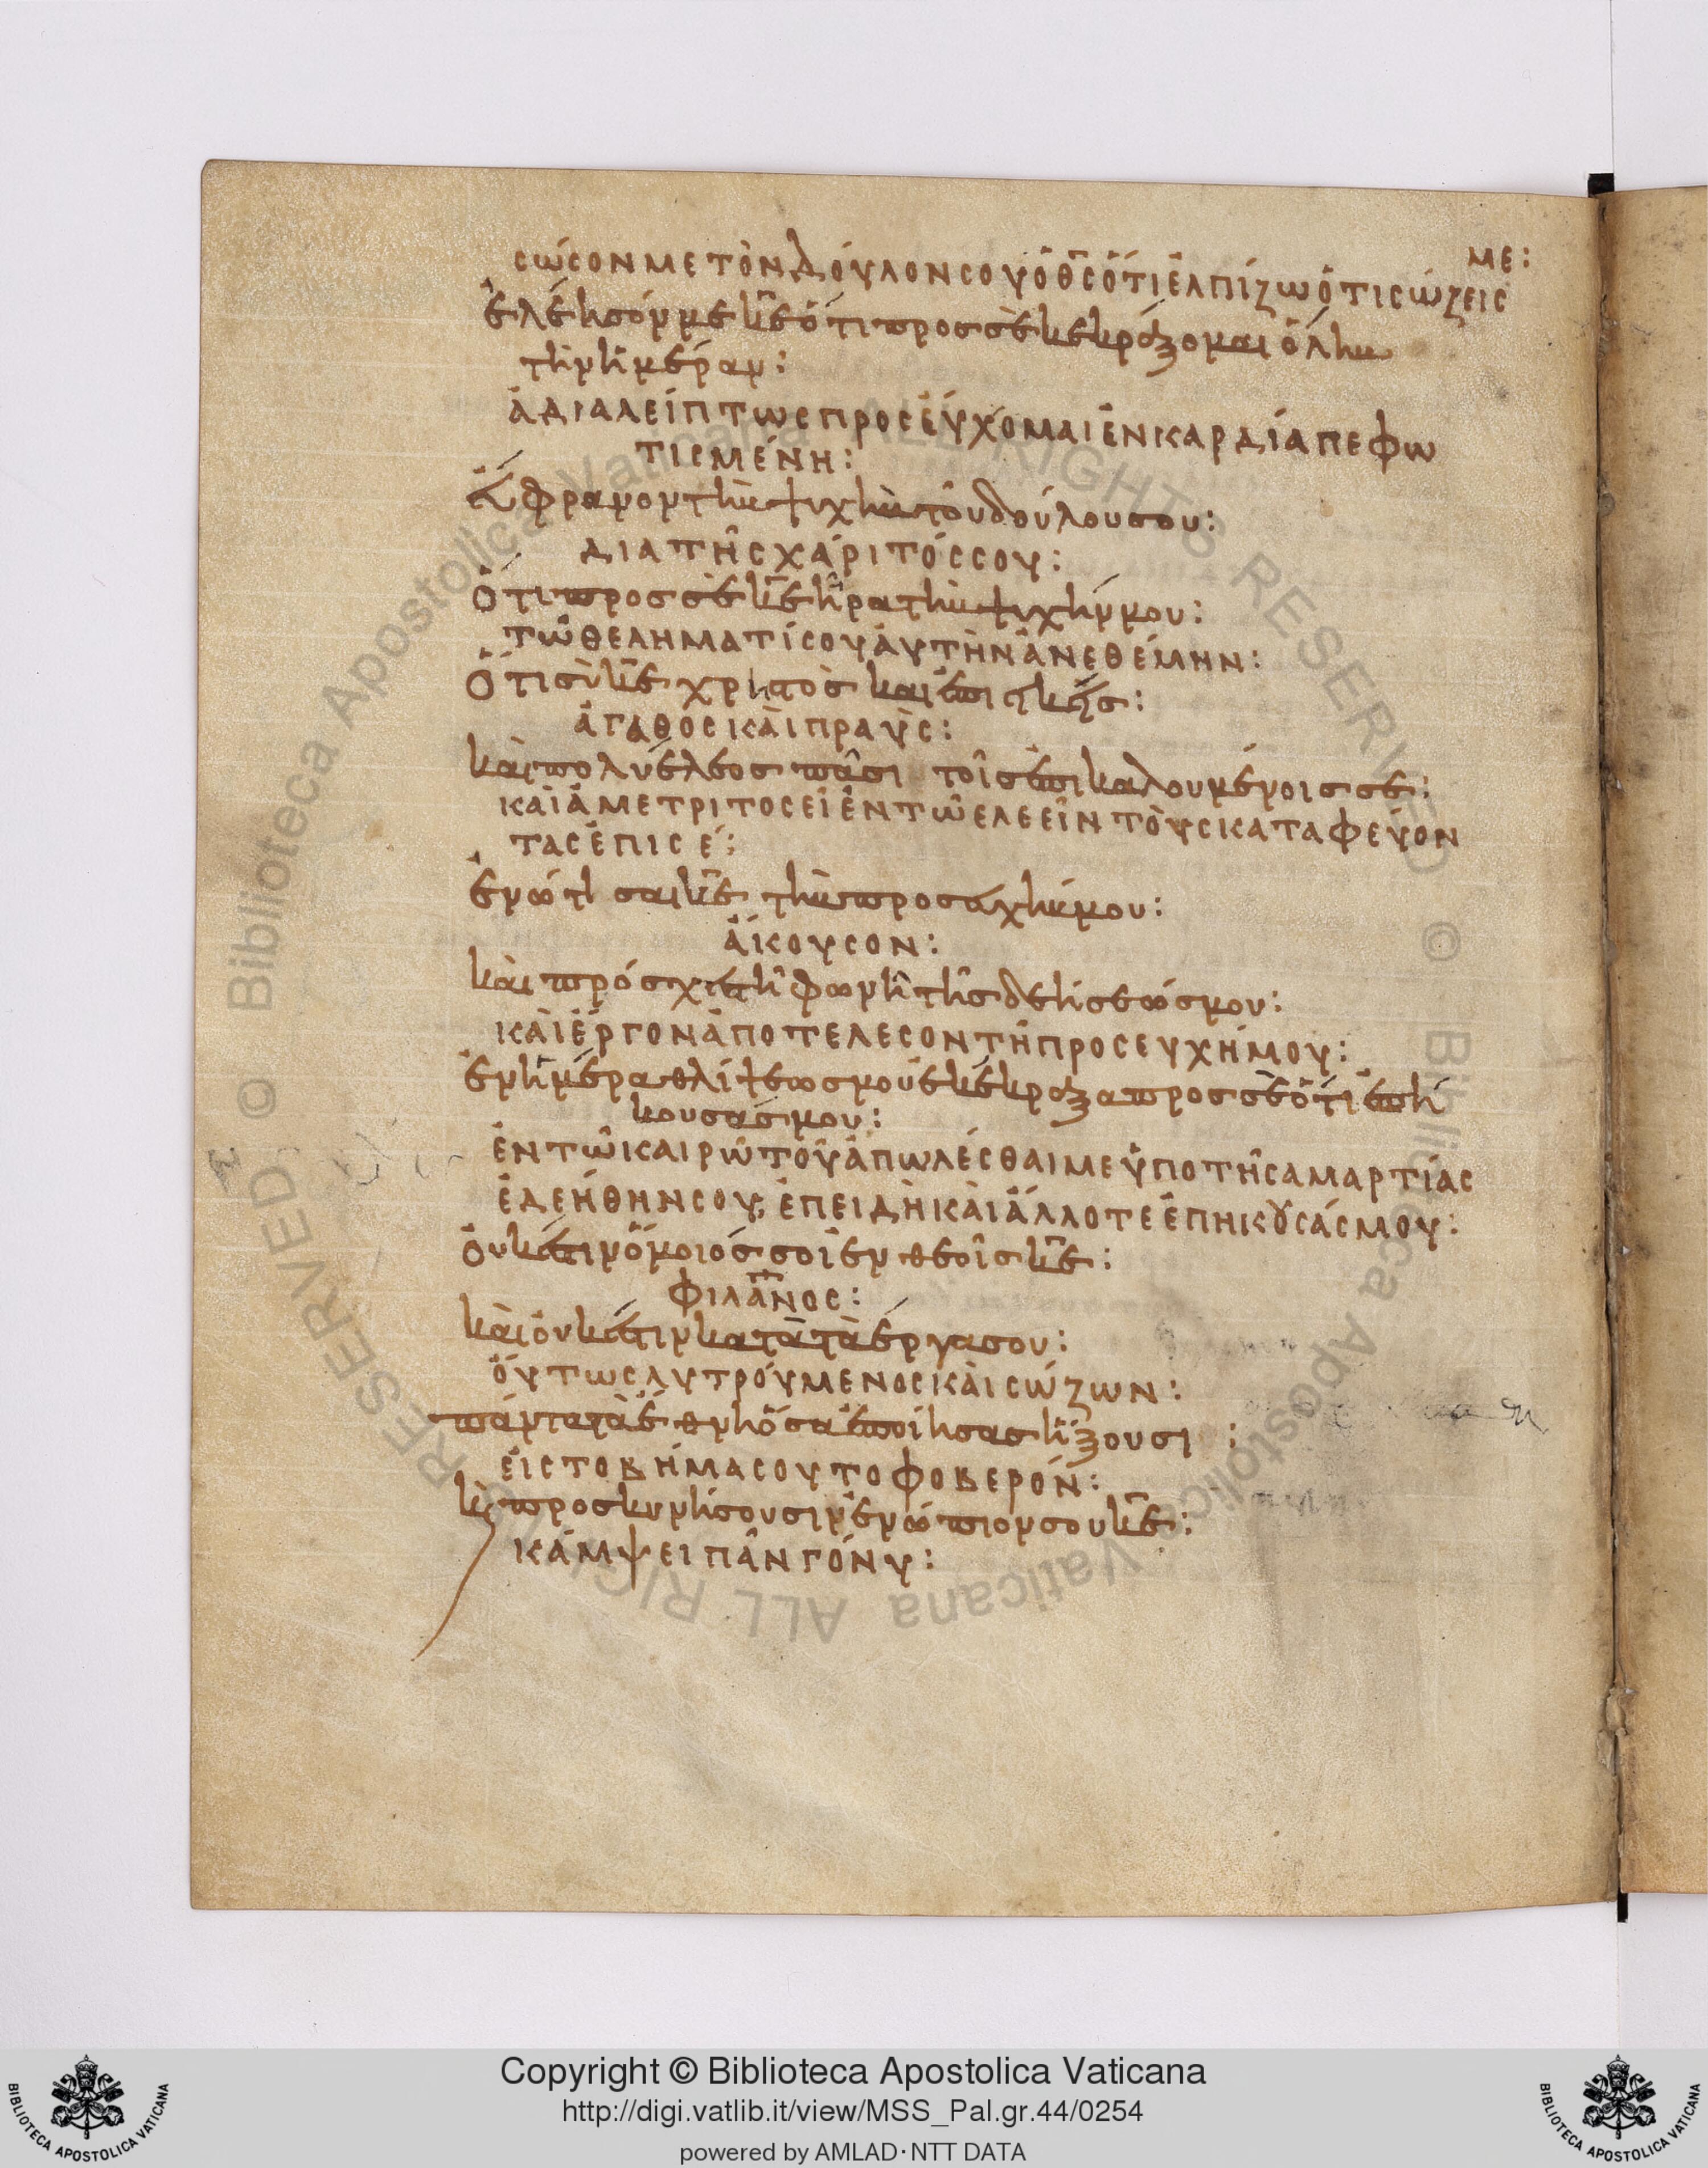 με:
σώσον με τὸν δόυλον σου ὁ θ̅σ̅ ὅτι ἐλπίζω ὅτι σώζεισ
ἐλέησόν με κ̅ε̅ ὅτι προσ σὲ κεκράξομαι ὅλην
τὴν ἡμέραν:
ἀδιαλείπτωσ προσέυχομαι ἐν καρδία πεφω
τισμένη:
ἔυφρανον τὴν ψυχὴν τοῦ δούλου σου:
δια τῆσ χάριτόσ σου:
Ὅτι προσ σὲ κ̅ε̅ ἦρα τὴν ψυχήν μου:
τῶ θεληματί σου ἀυτὴν ἀνεθέμην:
Ὅτι σὺ κ̅ε̅ χρηστὸσ και ἐπιεικὴσ:
ἀγαθοσ κὰι πραὺσ:
κὰι πολυέλεοσ πᾶσι τοῖσ ἐπικαλουμένοισ σε:
καὶ ἀμετριτοσ εἶ ἐν τῶ ελεεῖν τὸυσ καταφεύον
τασ ἐπι σέ:
ἐνώτισαι κ̅ε̅ τὴν προσευχήν μου:
ἄκουσον:
κὰι πρόσχεσ τῆ φωνῆ τῆσ δεήσεώσ μου:
κὰι ἔργον ἀποτελεσον τῆ προσευχή μου:
ἐν ἡμέρα θλίψεωσ μου ἐκέκραξα προσ σὲ ὅτι ἐπή
κουσάσ μου:
ἐν τῶ καιρῶ τοῦ ἀπωλέσθαι με ὑπο τῆσ αμαρτίασ
ἐδεήθην σου, ἐπειδὴ κὰι ἄλλοτε ἐπηκουσάσ μου:
Ὀυκ ἔστιν ὅμοιόσ σοι ἐν θεοῖσ κ̅ε̅:
φιλα̅ν̅οσ:
κὰι ὀυκ ἔστιν κατὰ τὰ ἔργα σου:
ὅυτωσ λυτρόυμενοσ κὰι σώζων:
πάντα τὰ ἔθνη ὅσα ἐποίησασ ἥξουσι:
εἰσ το βήμα σου το φοβερόν:
κὲ προσκυνήσουσιν ἐνώπιον σου κ̅ε̅:
κάμψει πᾶν γόνυ:
Copyright © Biblioteca Apostolica Vaticana
http://digi.vatlib.it/view/MSS_Pal.gr.44/0254
powered by AMLAD·NTT DATA